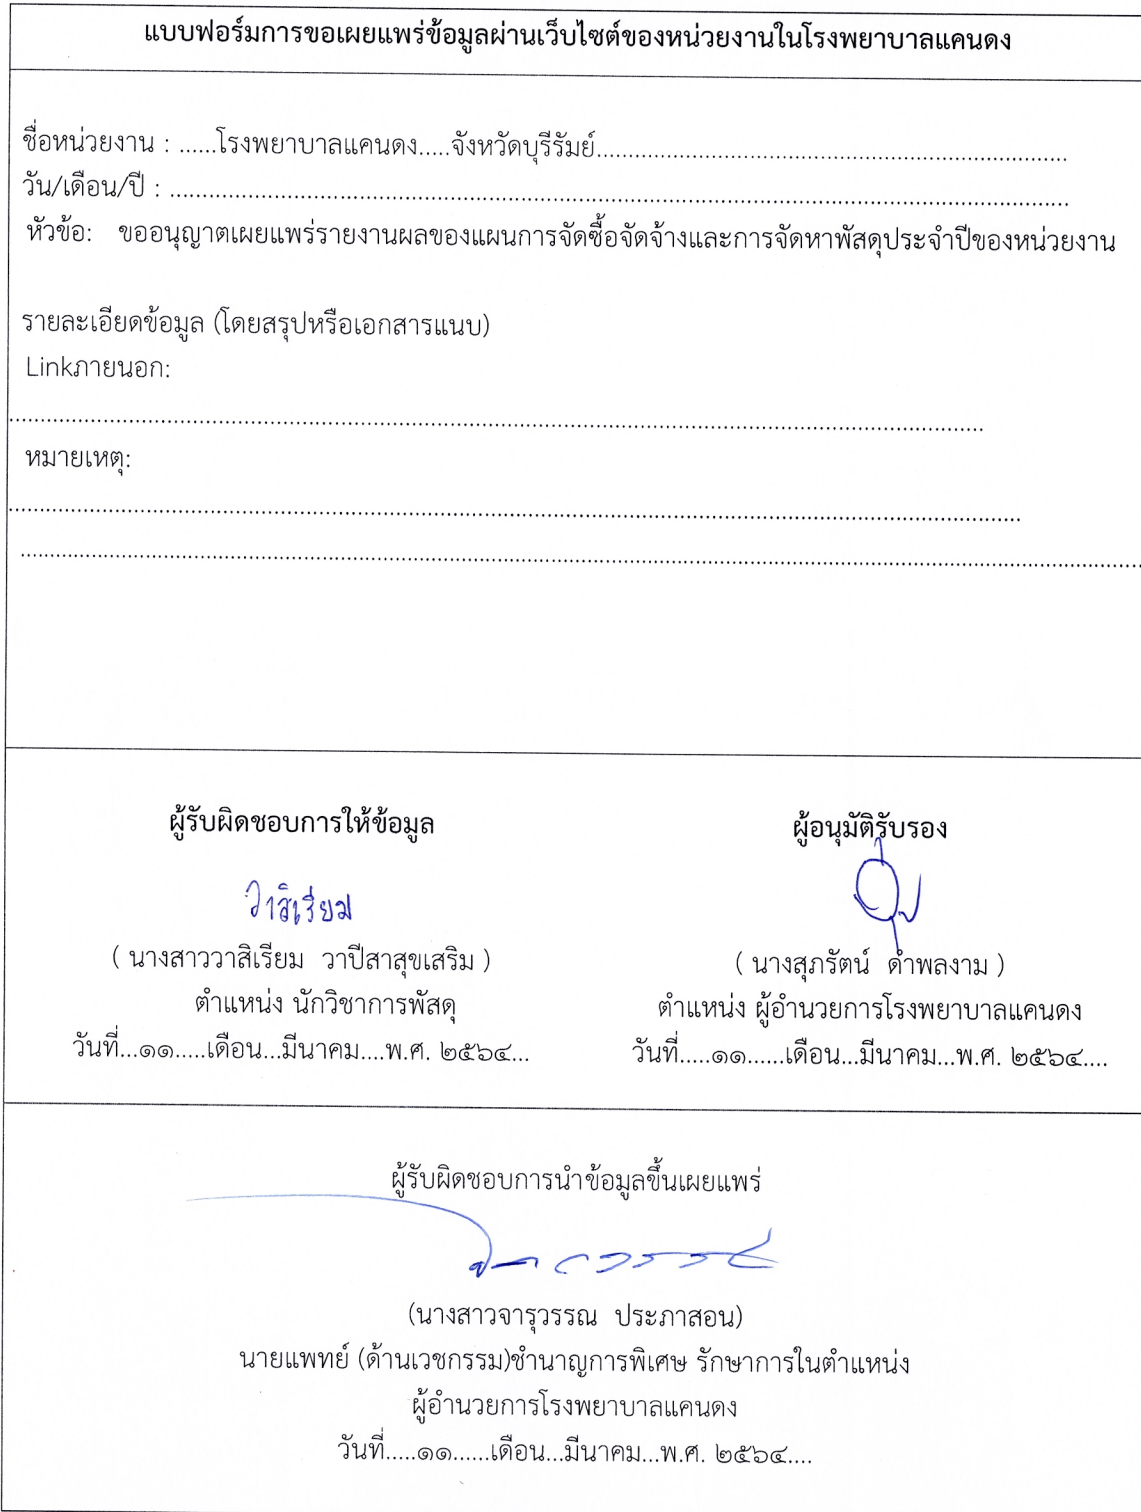 แบบฟอร์มการขอเผยแพร่ข้อมูลผ่านเว็บไซต์ของหน่วยงานในโรงพยาบาลแคนดง
ชื่อหน่วยงาน : ......โรงพยาบาลแคนดง.....จังหวัดบุรีรัมย์...........................................................................
วัน/เดือน/ปี : ...............................................................................................................................................
หัวข้อ: ขออนุญาตเผยแพร่รายงานผลของแผนการจัดซื้อจัดจ้างและการจัดหาพัสดุประจำปีของหน่วยงาน
รายละเอียดข้อมูล (โดยสรุปหรือเอกสารแนบ)
Linkภายนอก:
...........................................................................................................................................................
หมายเหตุ:
................................................................................................................................................................
..................................................................................................................................................................................
ผู้รับผิดชอบการให้ข้อมูล ผู้อนุมัติรับรอง
วาสิเรียม
( นางสาววาสิเรียม วาปีสาสุขเสริม ) ( นางสุภรัตน์ ดำพลงาม )
ตำแหน่ง นักวิชาการพัสดุ ตำแหน่ง ผู้อำนวยการโรงพยาบาลแคนดง
วันที่...๑๑.....เดือน...มีนาคม....พ.ศ. ๒๕๖๔... วันที่.....๑๑......เดือน...มีนาคม...พ.ศ. ๒๕๖๔....
ผู้รับผิดชอบการนำข้อมูลขึ้นเผยแพร่
(นางสาวจารุวรรณ ประภาสอน)
นายแพทย์ (ด้านเวชกรรม)ชำนาญการพิเศษ รักษาการในตำแหน่ง
ผู้อำนวยการโรงพยาบาลแคนดง
วันที่.....๑๑......เดือน...มีนาคม...พ.ศ. ๒๕๖๔....